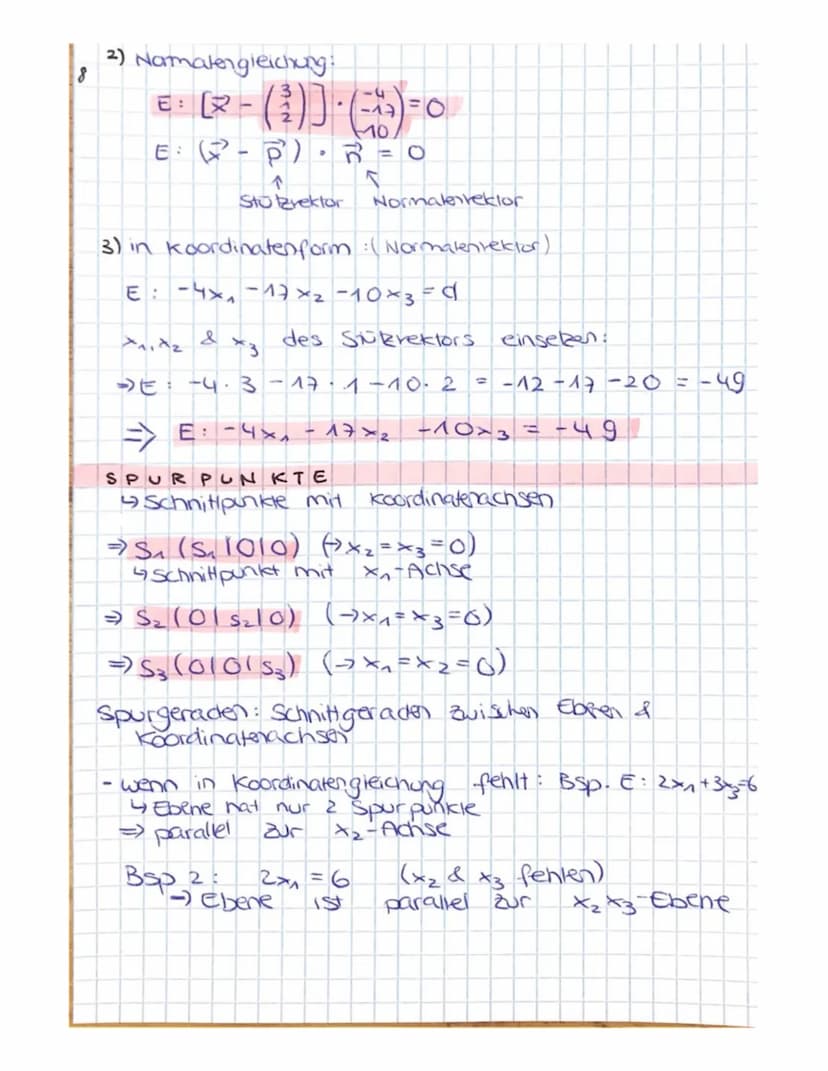 8
2) Normalengleichung:
E: [x⃗ - (3 1 2)] · (-4 -17 -10) = 0
E: (x⃗ - p⃗) · n⃗ = 0
↑ ↖
Stützvektor Normalenvektor
3) in Koordinatenform :(Normalenvektor)
E: -4x₁ -17x₂ -10x₃ = d
x₁, x₂ & x₃ des Stützvektors einsetzen:
⇒ E: -4·3 -17·1 -10·2 = -12 -17 -20 = -49
⇒ E: -4x₁ - 17x₂ -10x₃ = -49
SPURPUNKTE
↳ Schnittpunkte mit Koordinatenachsen
⇒ S₁ (s₁|0|0) (→x₂=x₃=0)
↳ Schnittpunkt mit x₁-Achse
⇒ S₂ (0|s₂|0) (→x₁=x₃=0)
⇒ S₃ (0|0|s₃) (→x₁=x₂=0)
Spurgeraden: Schnittgeraden zwischen Ebenen &
Koordinatenachsen
- wenn in Koordinatengleichung fehlt: Bsp. E: 2x₁+3x₃=6
↳ Ebene hat nur 2 Spurpunkte
⇒ parallel zur x₂-Achse
Bsp 2: 2x₁ = 6 (x₂ & x₃ fehlen)
→ Ebene ist parallel zur x₂x₃-Ebene